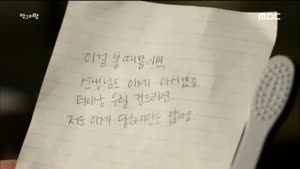 앵그리맘
MBC
이걸 볼 때쯤이면,
선생님도 이제 아시겠죠.
더이상 우릴 건드리면,
저도 이제 당하지만은 않아요